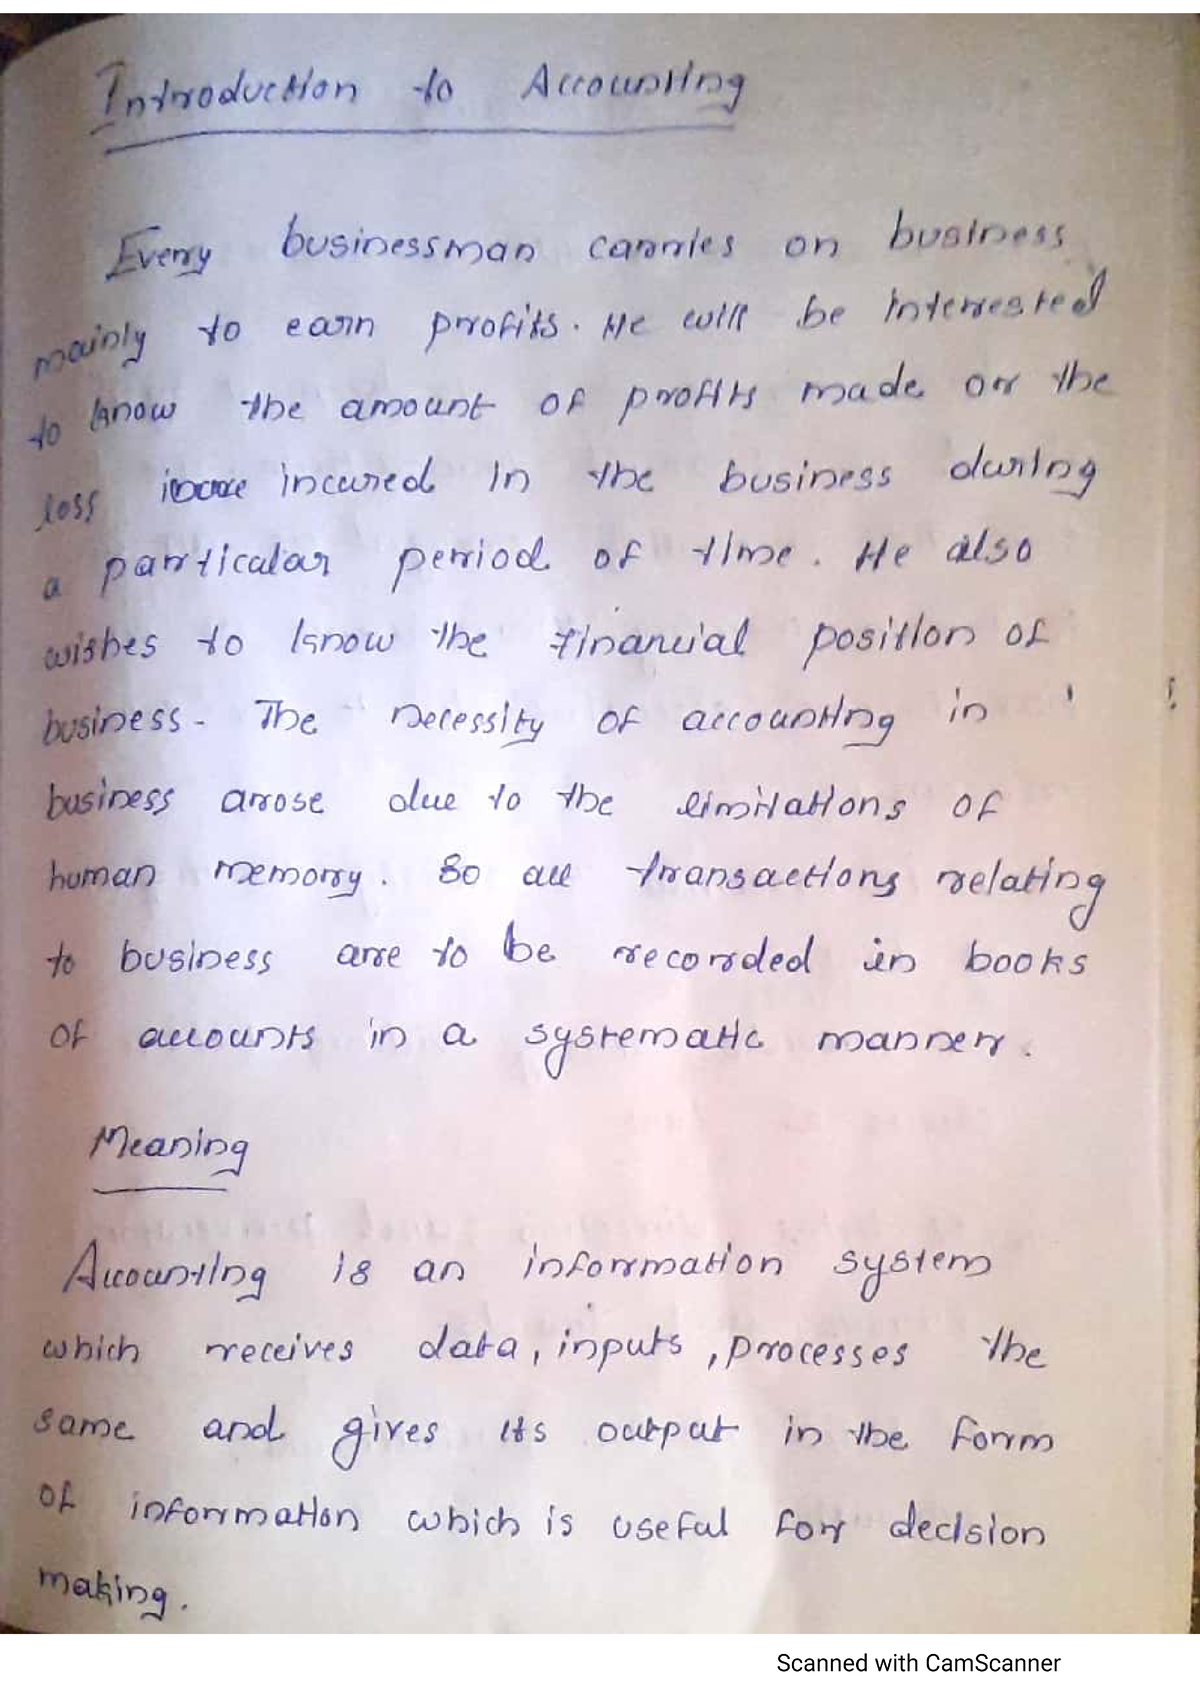 Introduction to Accounting
Every businessman carries on business
mainly to earn profits. He will be interested
to know the amount of profits made or the
loss incured in the business during
a particular period of time. He also
wishes to know the financial position of
business. The necessity of accounting in
business arose due to the limitations of
human memory. So all transactions relating
to business are to be recorded in books
of accounts in a systematic manner.
Meaning
Accounting is an information system
which receives data, inputs, processes the
same and gives its output in the form
of information which is useful for decision
making.
Scanned with CamScanner